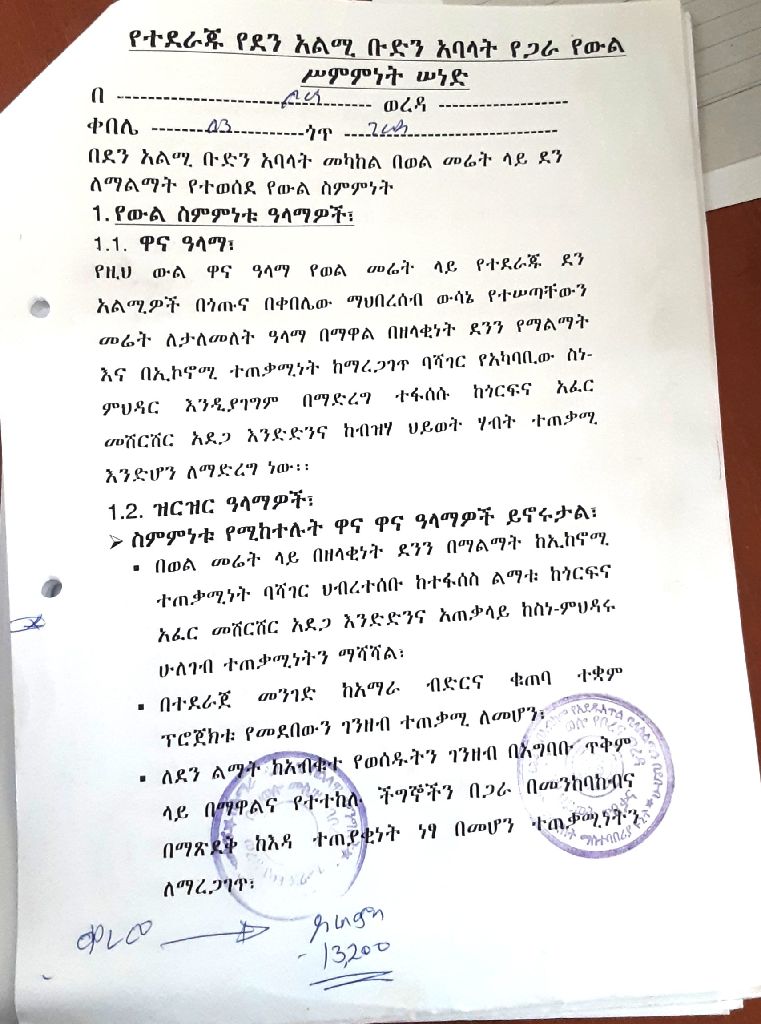 የተደራጁ የደን አልሚ ቡድን አባላት የጋራ የውል
ሥምምነት ሠነድ
በ ---------------------------- ወረዳ ----------------
ቀበሌ ------- 03 --------- ጎጥ --------------------------
በደን አልሚ ቡድን አባላት መካከል በወል መሬት ላይ ደን
ለማልማት የተወሰደ የውል ስምምነት
1. የውል ስምምነቱ ዓላማዎች፣
1.1. ዋና ዓላማ፣
የዚህ ውል ዋና ዓላማ የወል መሬት ላይ የተደራጁ ደን
አልሚዎች በጎጡና በቀበሌው ማህበረሰብ ውሳኔ የተሠጣቸውን
መሬት ለታለመለት ዓላማ በማዋል በዘላቂነት ደንን የማልማት
እና በኢኮኖሚ ተጠቃሚነት ከማረጋገጥ ባሻገር የአካባቢው ስነ-
ምህዳር እንዲያገግም በማድረግ ተፋሰሱ ከጎርፍና አፈር
መሸርሸር አደጋ እንድድንና ከብዝሃ ህይወት ሃብት ተጠቃሚ
እንድሆን ለማድረግ ነው፡፡
1.2. ዝርዝር ዓላማዎች፣
➢ ስምምነቱ የሚከተሉት ዋና ዋና ዓላማዎች ይኖሩታል፣
▪ በወል መሬት ላይ በዘላቂነት ደንን በማልማት ከኢከኖሚ
ተጠቃሚነት ባሻገር ህብረተሰቡ ከተፋሰስ ልማቱ ከጎርፍና
አፈር መሸርሸር አደጋ እንድድንና አጠቃላይ ከስነ-ምህዳሩ
ሁለገብ ተጠቃሚነትን ማሻሻል፣
▪ በተደራጀ መንገድ ከአማራ ብድርና ቁጠባ ተቋም
ፕሮጀክቱ የመደበውን ገንዘብ ተጠቃሚ ለመሆን፣
▪ ለደን ልማት ከአብቁተ የወሰዱትን ገንዘብ በአግባቡ ጥቅም
ላይ በማዋልና የተተከሉ ችግኞችን በጋራ በመንከባከብና
በማጽደቅ ከእዳ ተጠያቂነት ነፃ በመሆን ተጠቃሚነትን
ለማረጋገጥ፣
13,200